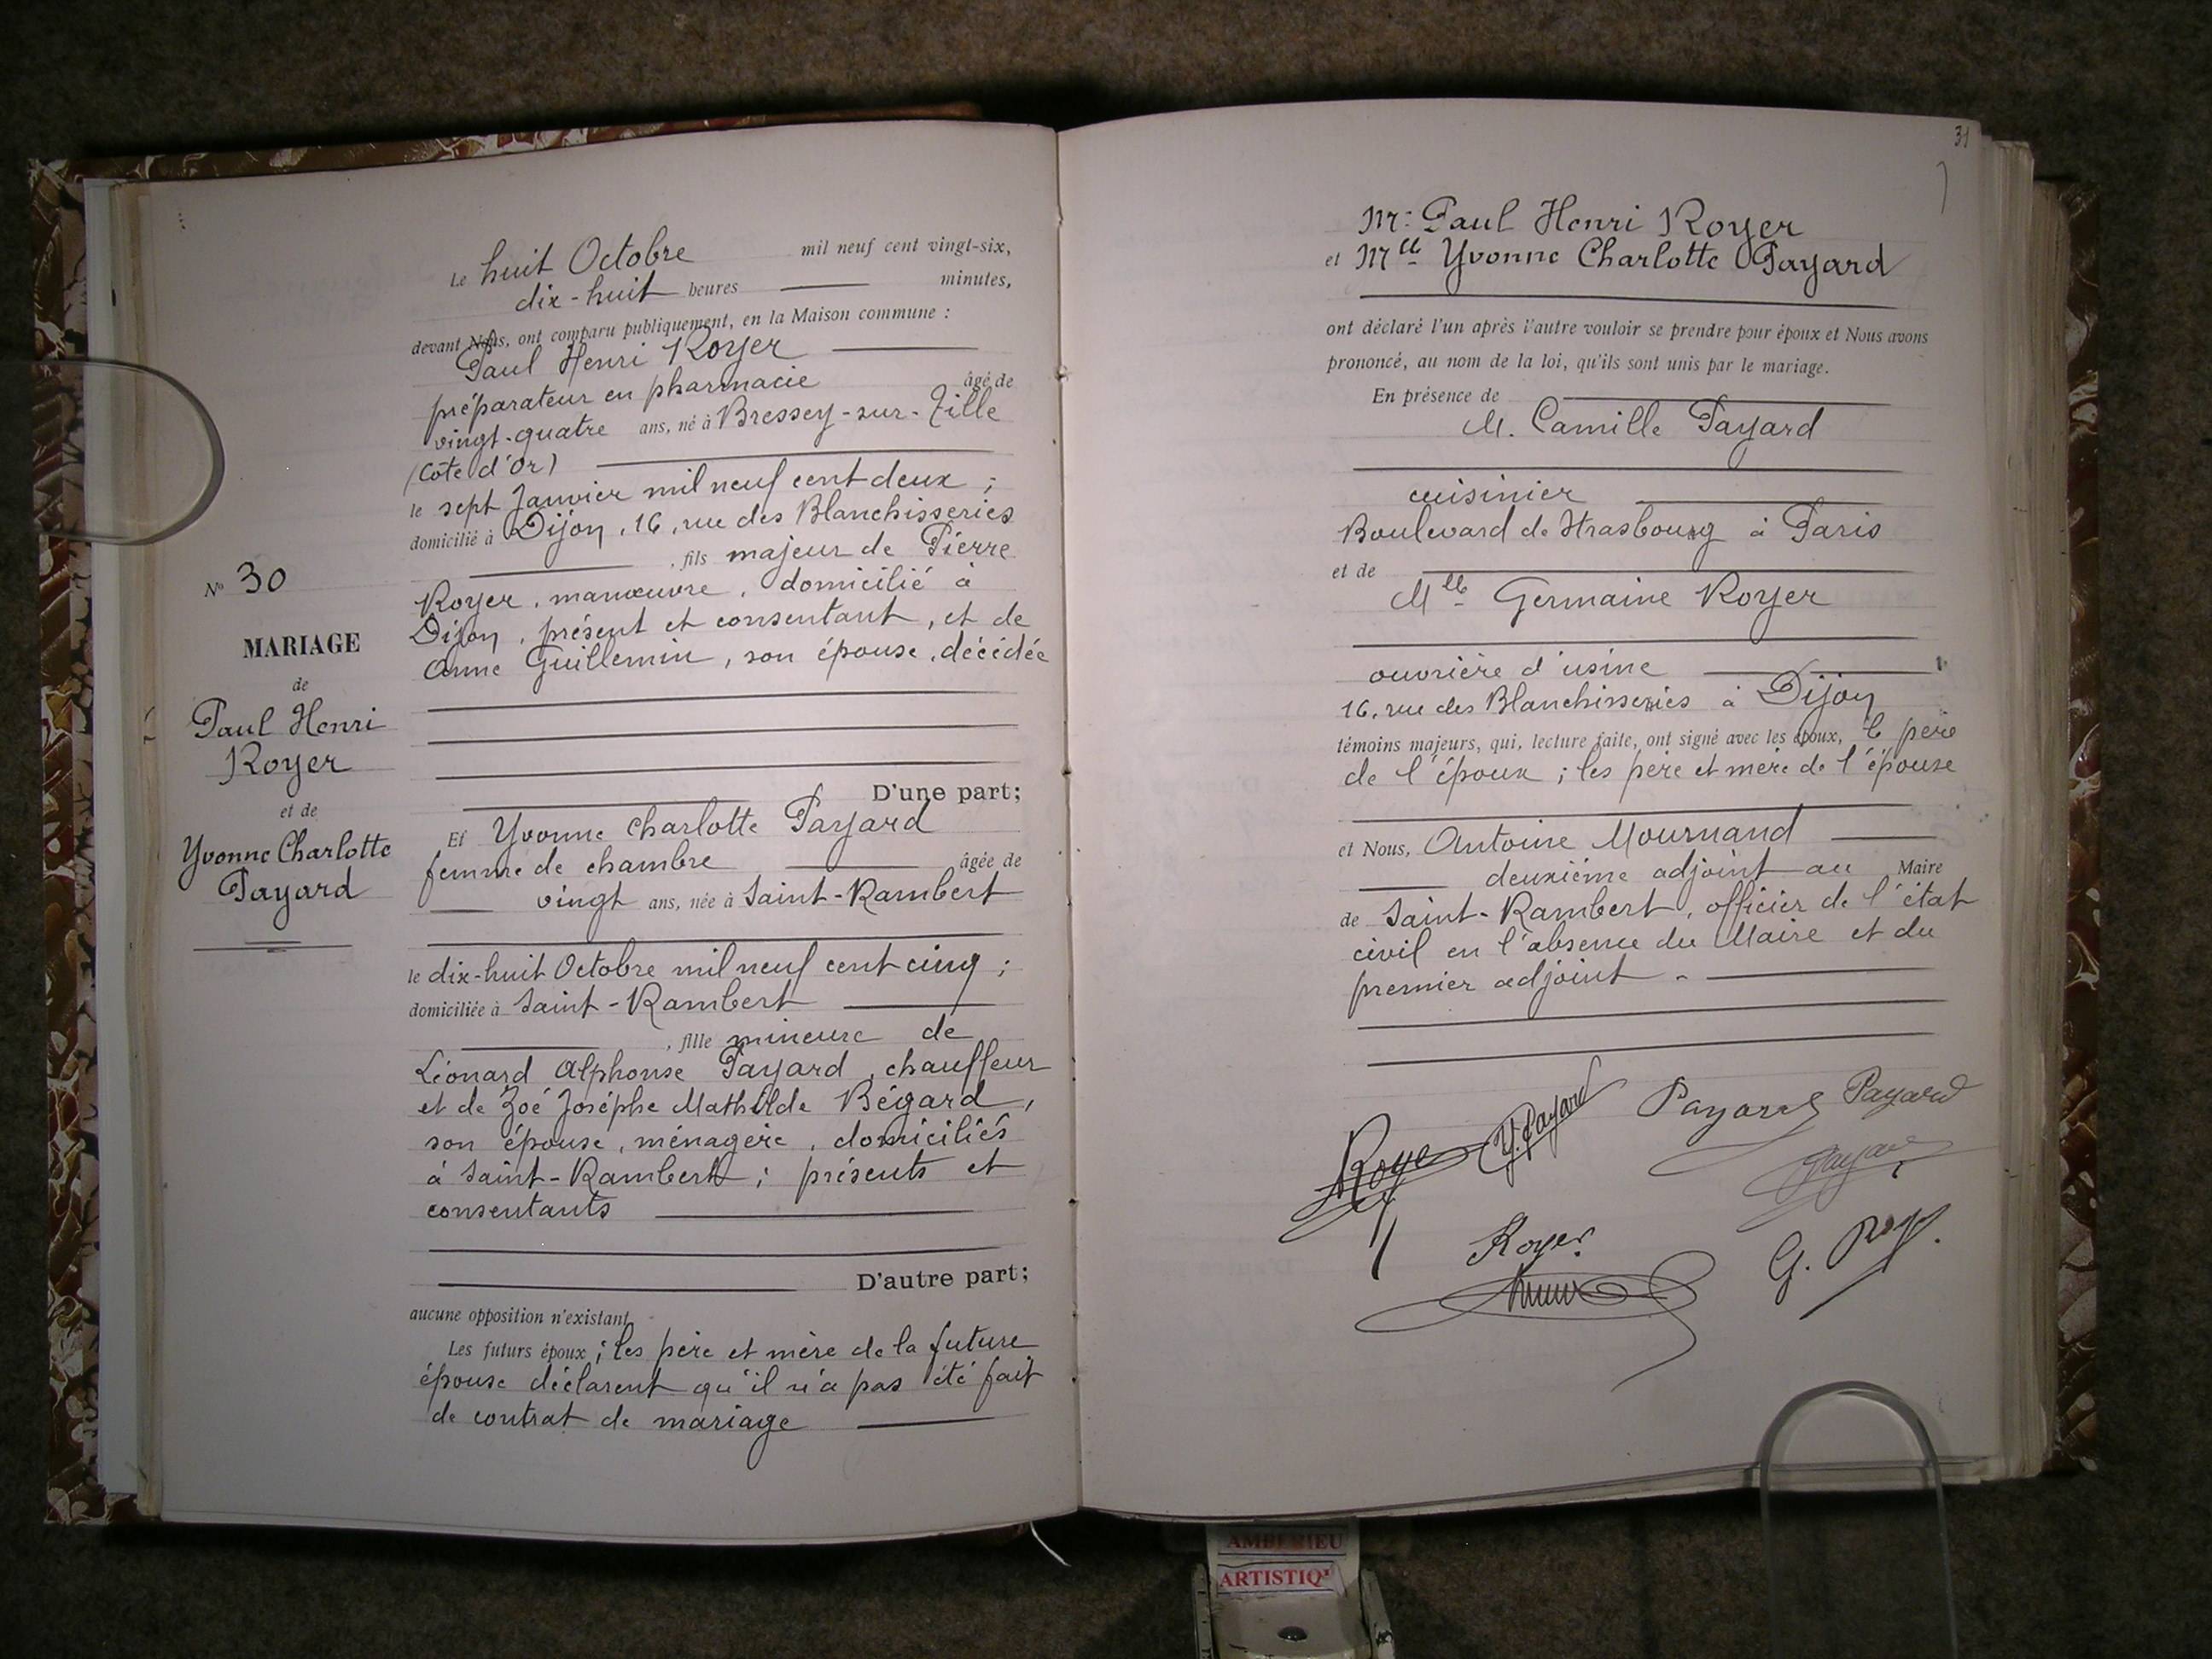 Le huit Octobre mil neuf cent vingt-six,
dix-huit heures minutes,
devant Nous, ont comparu publiquement, en la Maison commune :
Paul Henri Royer
préparateur en pharmacie âgé de
vingt-quatre ans, né à Bressey-sur-Tille
(Côte d'Or)
le sept Janvier mil neuf cent deux ;
domicilié à Dijon, 16, rue des Blanchisseries
, fils majeur de Pierre
Royer, manœuvre, domicilié à
Dijon, présent et consentant, et de
Anne Guillemin, son épouse, décédée
D'une part;
Et Yvonne Charlotte Payard
femme de chambre âgée de
vingt ans, née à Saint-Rambert
le dix-huit Octobre mil neuf cent cinq ;
domiciliée à Saint-Rambert
, fille mineure de
Léonard Alphonse Payard, chauffeur
et de Zoé Joséphe Mathilde Bégard,
son épouse, ménagère, domiciliés
à Saint-Rambert ; présents et
consentants
D'autre part;
aucune opposition n'existant
Les futurs époux ; les père et mère de la future
épouse déclarent qu'il n'a pas été fait
de contrat de mariage
N° 30
MARIAGE
de
Paul Henri
Royer
et de
Yvonne Charlotte
Payard
31
Mr. Paul Henri Royer
et Mlle Yvonne Charlotte Payard
ont déclaré l'un après l'autre vouloir se prendre pour époux et Nous avons
prononcé, au nom de la loi, qu'ils sont unis par le mariage.
En présence de
M. Camille Payard
cuisinier
Boulevard de Strasbourg à Paris
et de
Mlle Germaine Royer
ouvrière d'usine
16, rue des Blanchisseries à Dijon
témoins majeurs, qui, lecture faite, ont signé avec les époux, le père
de l'époux ; les père et mère de l'épouse
et Nous, Antoine Mournand
deuxième adjoint au Maire
de Saint-Rambert, officier de l'état
civil en l'absence du Maire et du
premier adjoint -
Royer Y. Payard Payard Payard
Payard
Royer G. Roye
AMBERIEU
ARTISTIQ